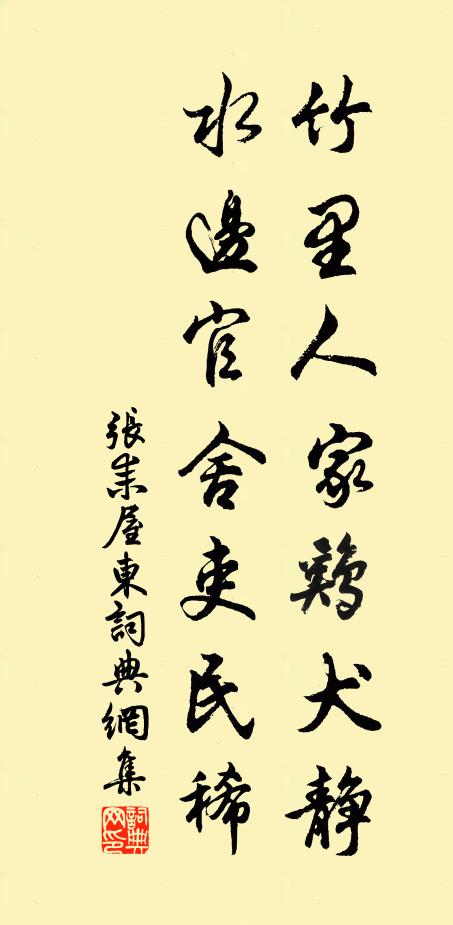 竹里人家鷄犬静
水邊官舍吏民稀
張耒屋東詞典網集
詞典網印